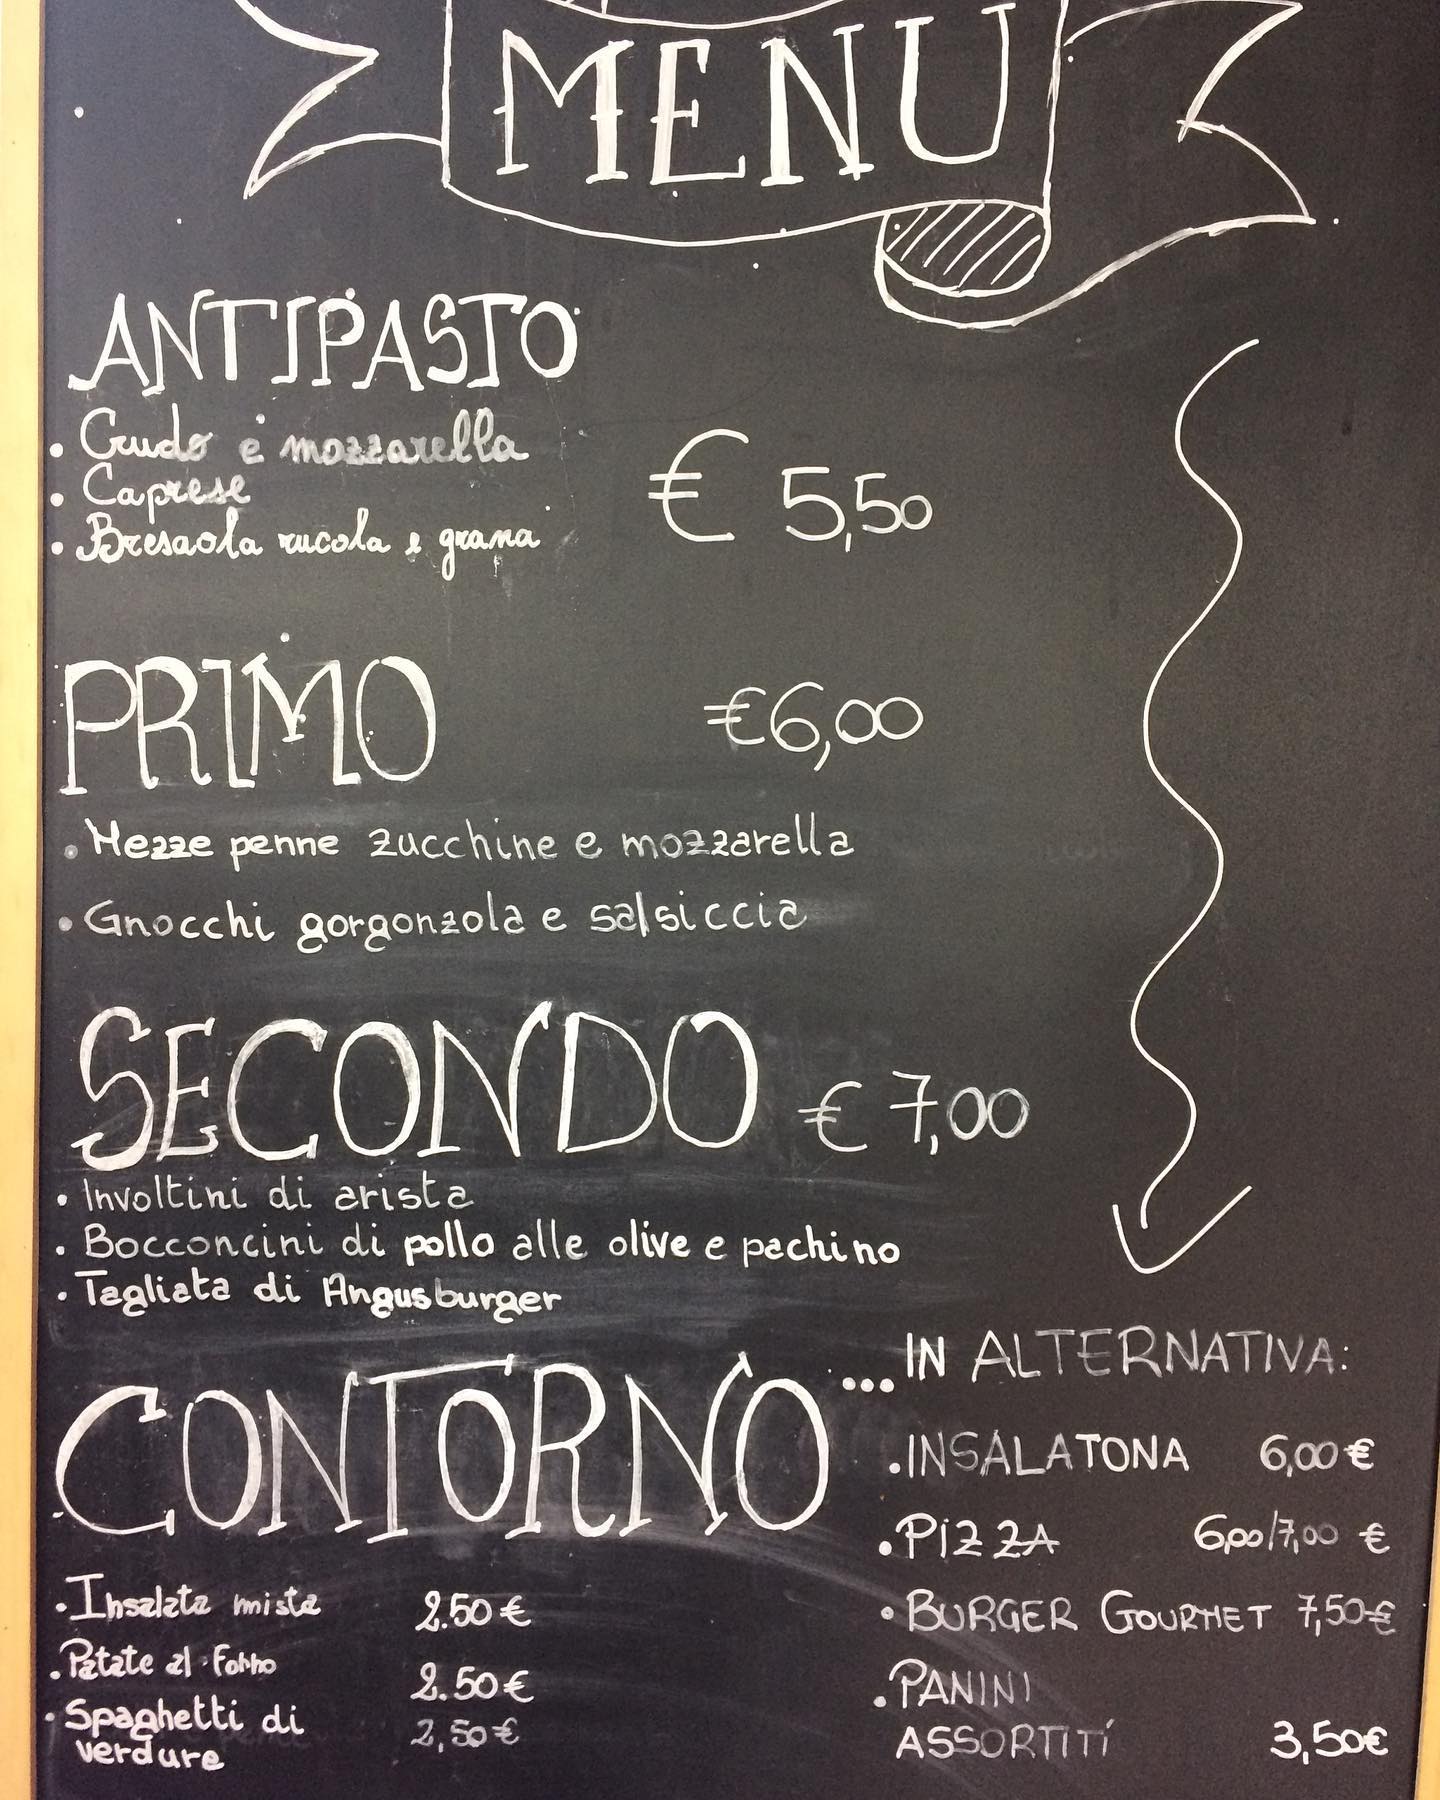 MENU
ANTIPASTO
• Crudo e mozzarella
• Caprese
• Bresaola rucola e grana
€ 5,50
PRIMO €6,00
• Mezze penne zucchine e mozzarella
• Gnocchi gorgonzola e salsiccia
SECONDO € 7,00
• Involtini di arista
• Bocconcini di pollo alle olive e pachino
• Tagliata di Angusburger
CONTORNO
• Insalata mista 2.50 €
• Patate al forno 2.50 €
• Spaghetti di 2,50 €
verdure
...IN ALTERNATIVA:
• INSALATONA 6,00 €
• PIZZA 6,00/7,00 €
• BURGER GOURMET 7,50 €
• PANINI
ASSORTITI 3,50€